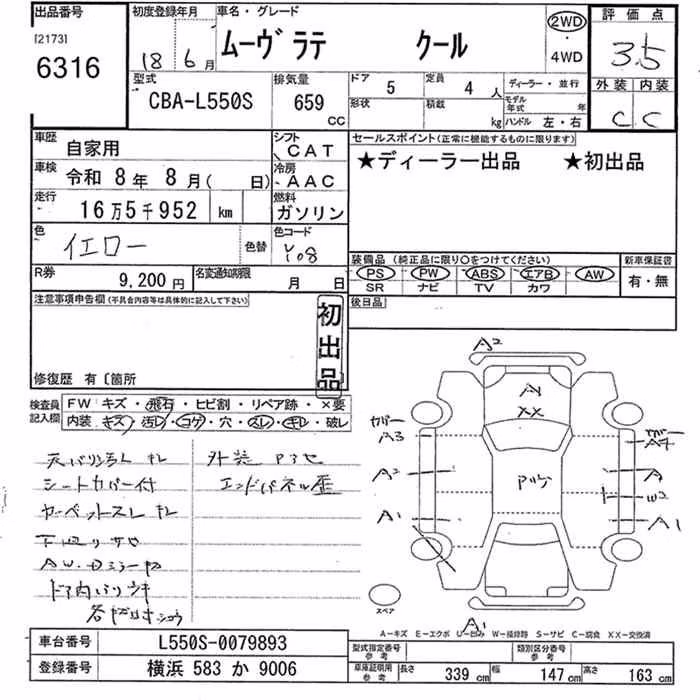 出品番号 初度登録年月 車名・グレード 評価点
[2173] 6316 18 6月 ムーヴ ラテ クール 2WD・4WD 3.5
型式 排気量 ドア 5 定員 4人 ディーラー・並行 外装 内装
CBA-L550S 659 CC 形状 積載 kg モデル年式 年 ハンドル 左・右 C C
車歴 自家用 シフト CAT セールスポイント(正常に機能するものに限ります)
車検 令和 8年 8月( 日) 冷房 AAC ★ディーラー出品 ★初出品
走行 16万5千952 km 燃料 ガソリン
色 イエロー 色替 色コード Y08
装備品(純正品に限り○をつけてください) 新車保証書
R券 9,200円 名変通知期限 月 日 PS PW ABS エアB AW 有・無
SR ナビ TV カワ
注意事項申告欄(不具合内容等は具体的に記入して下さい) 初出品 後日品
修復歴 有〔箇所
検査員記入欄 FW キズ・飛石・ヒビ割・リペア跡・×要
内装 キズ・汚レ・コゲ・穴・スレ・キレ・破レ
シートカバー付 エンドパネル歪
カーペットスレ
A2
A
XX
カバー
A3
A2 A
W2
A1 A1
スペア
A1
A-キズ E-エクボ U-凹み W-補修跡 S-サビ C-腐食 XX-交換済
車台番号 L550S-0079893 型式指定番号 参考 類別区分番号 参考
登録番号 横浜 583 か 9006 車庫証明用 参考 長さ 339cm 幅 147cm 高さ 163cm